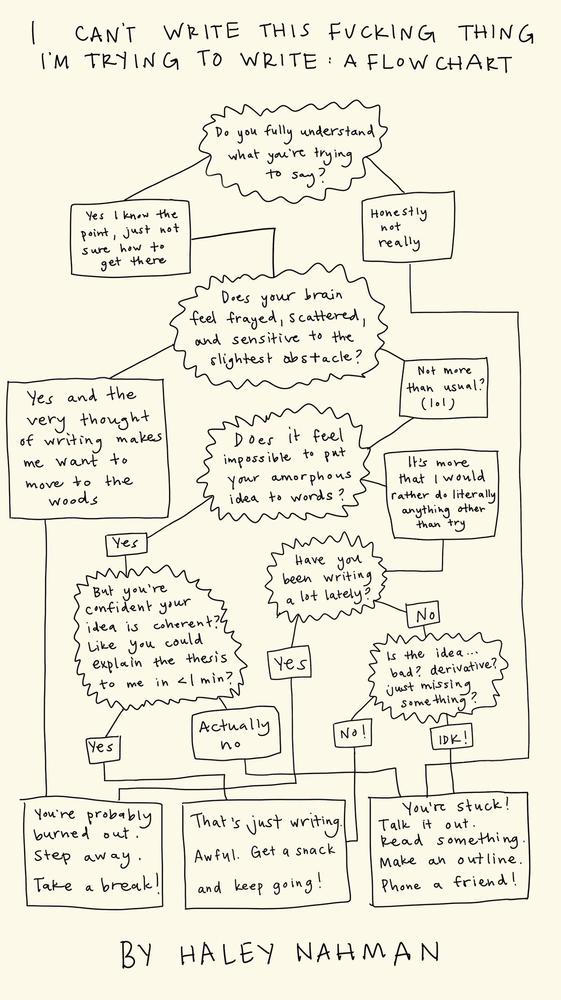 I CAN'T WRITE THIS FUCKING THING
I'M TRYING TO WRITE: A FLOW CHART
Do you fully understand
what you're trying
to say?
Yes I know the
point, just not
sure how to
get there
Honestly
not
really
Does your brain
feel frayed, scattered,
and sensitive to the
slightest obstacle?
Yes and the
very thought
of writing makes
me want to
move to the
woods
Not more
than usual?
(lol)
Does it feel
impossible to put
your amorphous
idea to words?
It's more
that I would
rather do literally
anything other
than try
Yes
Have you
been writing
a lot lately?
But you're
confident your
idea is coherent?
Like you could
explain the thesis
to me in <1 min?
No
Yes
Is the idea...
bad? derivative?
just missing
something?
Yes
Actually
no
No!
IDK!
You're probably
burned out.
Step away.
Take a break!
That's just writing.
Awful. Get a snack
and keep going!
You're stuck!
Talk it out.
Read something.
Make an outline.
Phone a friend!
BY HALEY NAHMAN